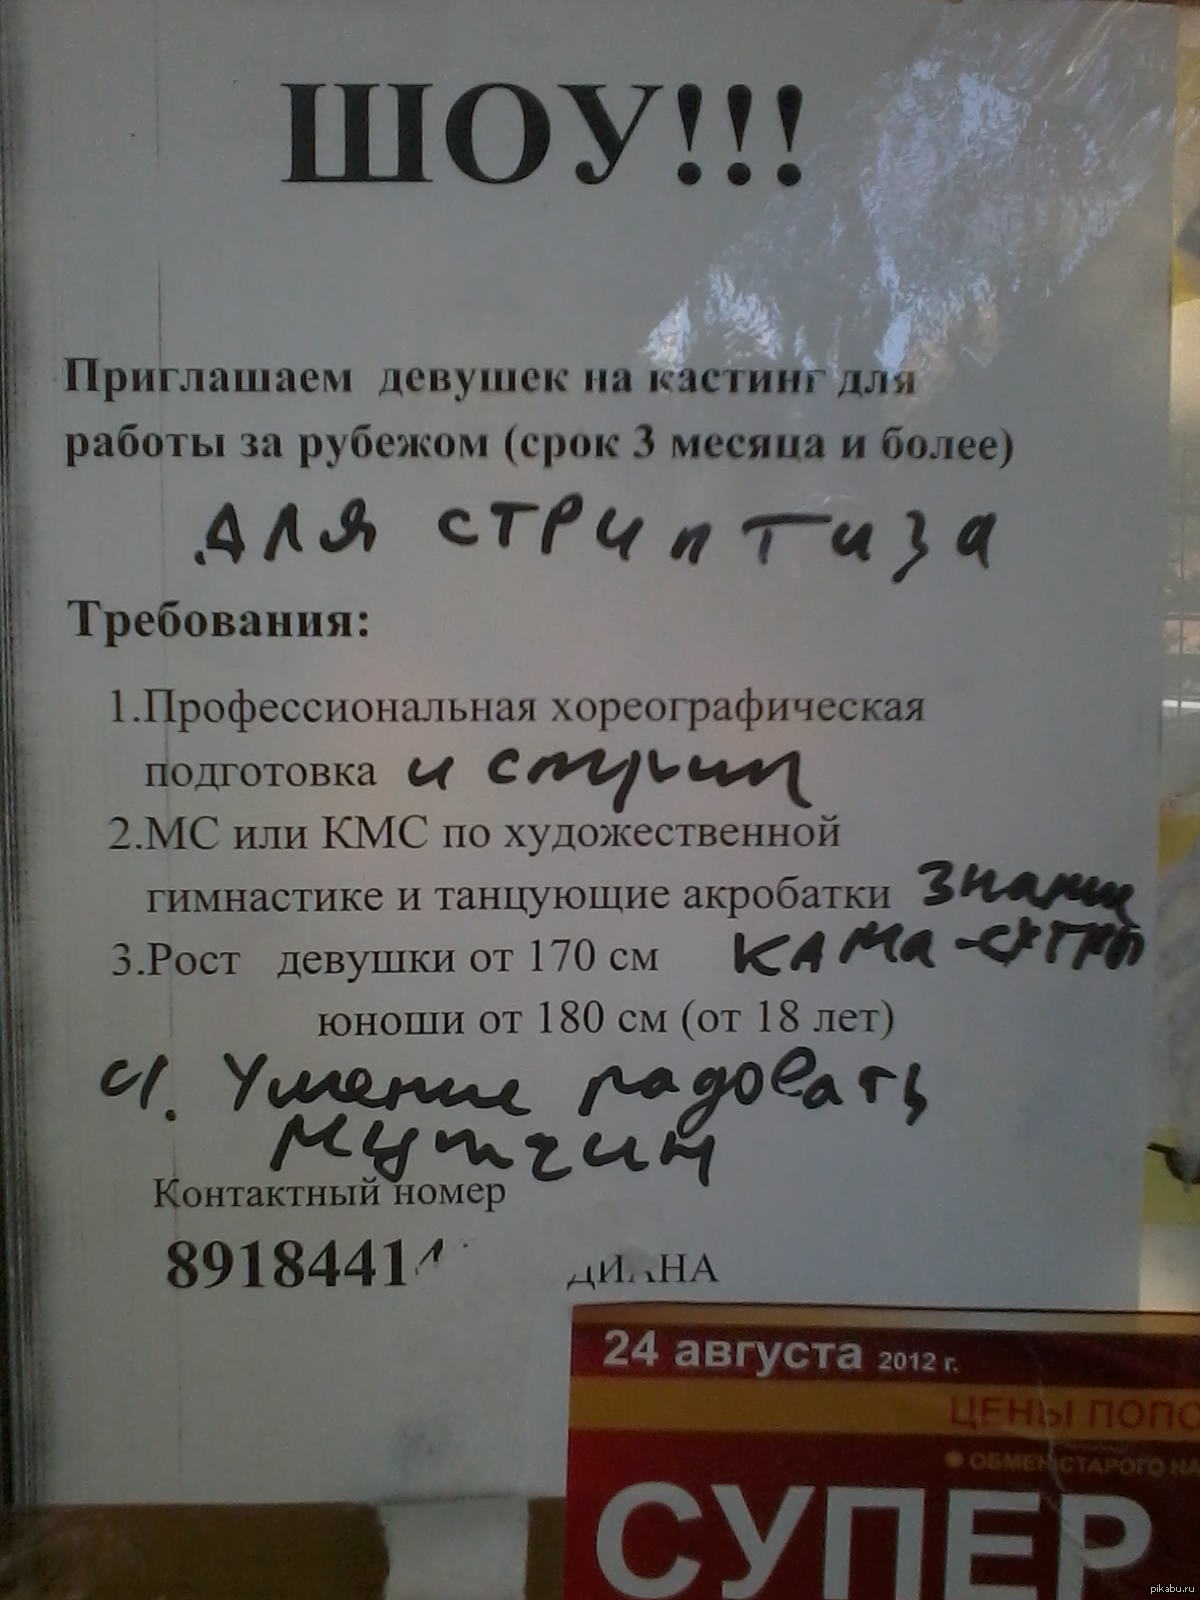 ШОУ!!!
Приглашаем девушек на кастинг для
работы за рубежом (срок 3 месяца и более)
для стриптиза
Требования:
1.Профессиональная хореографическая
подготовка и стрип
2.МС или КМС по художественной
гимнастике и танцующие акробатки знание
3.Рост девушки от 170 см кама-сутры
юноши от 180 см (от 18 лет)
4. Умение радовать
мужчин
Контактный номер
89184414 ДИАНА
24 августа 2012 г.
ЦЕНЫ
ОБМЕН СТАРОГО НА
СУПЕР
pikabu.ru